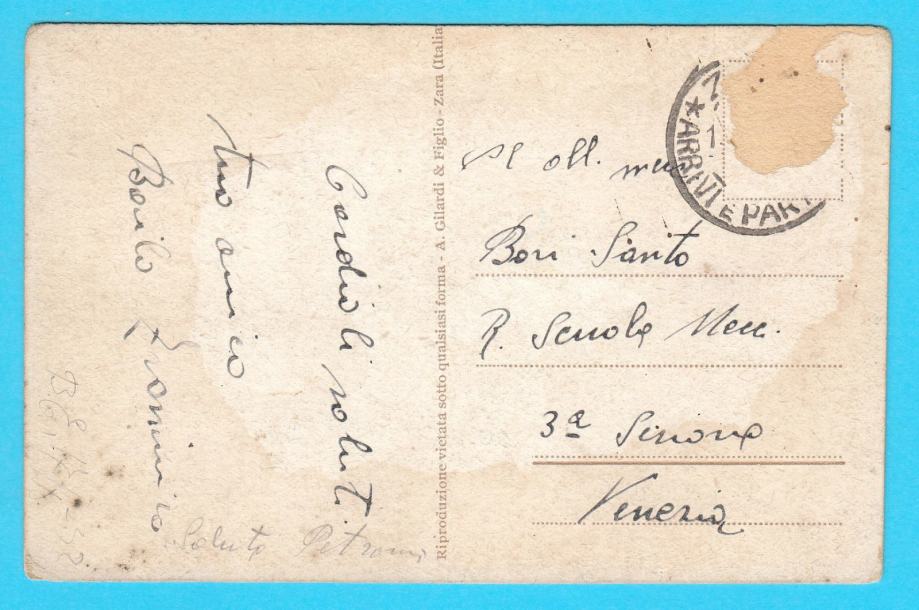 Cordiali saluti
tuo amico
Saluto
Riproduzione vietata sotto qualsiasi forma - A. Gilardi & Figlio - Zara (Italia)
★ARRIVI E PART
Al all. mecc
Bori Santo
R. Scuola Mecc.
3ª Sezione
Venezia